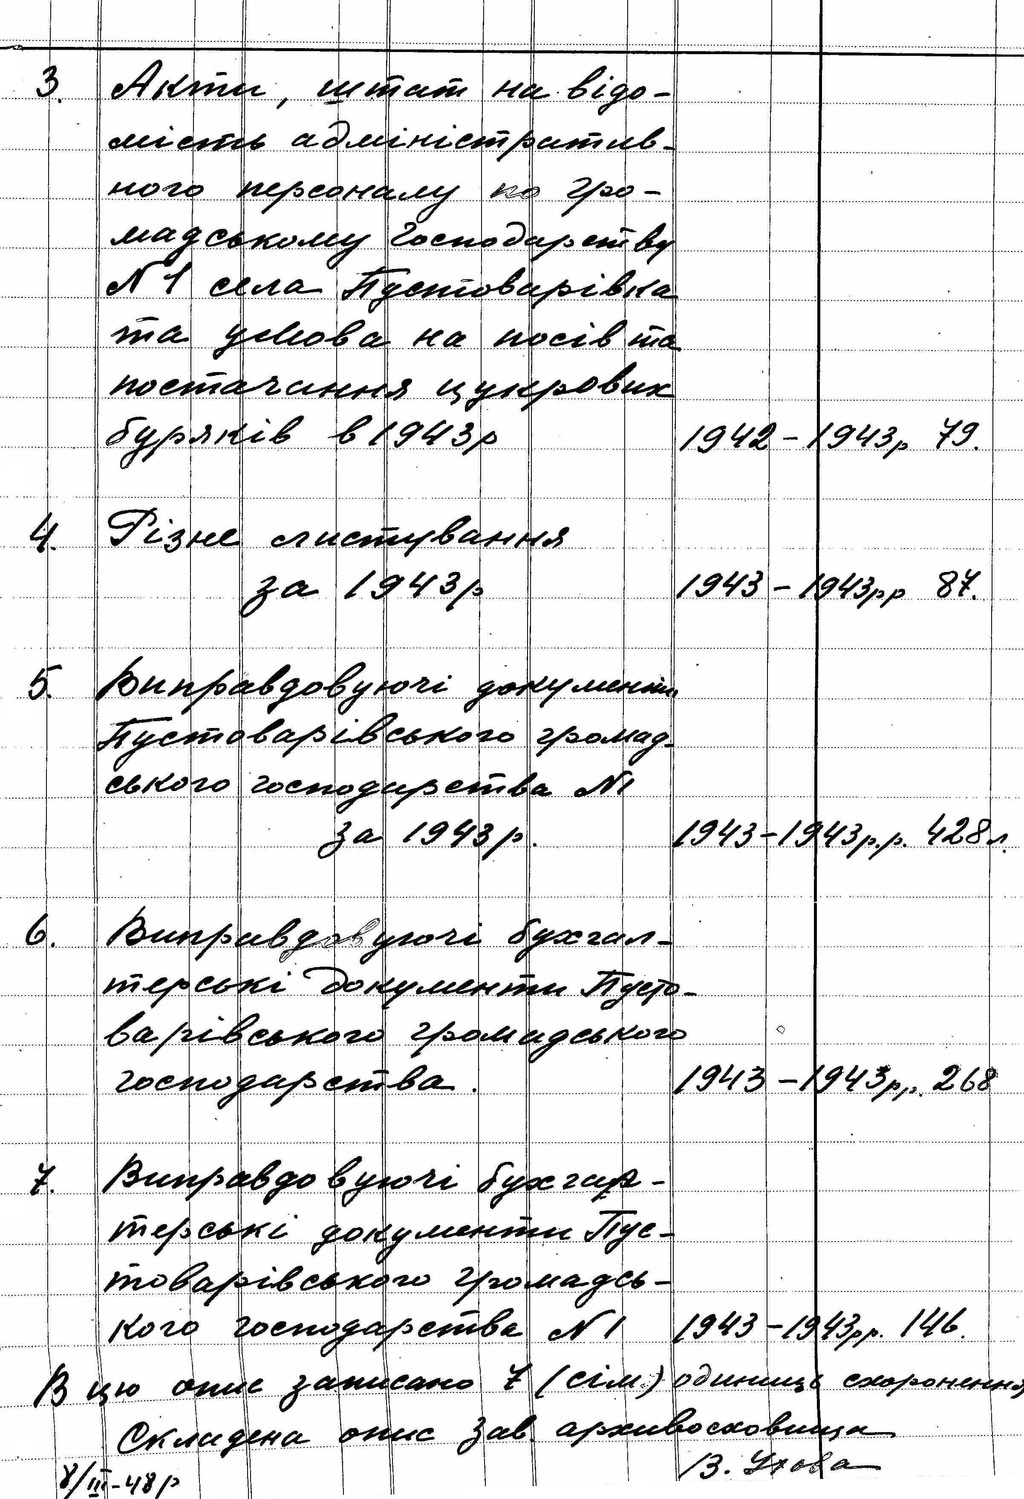 3. Акти, штат на відо-
мість адміністратив-
ного персоналу по гро-
мадському господарству
N1 села Пустоварівка
та умова на посів та
постачання цукрових
буряків в 1943р 1942-1943р 79.
4. Різне листування
за 1943р 1943-1943рр 87.
5. Виправдовуючі документи
Пустоварівського громад-
ського господарства N1
за 1943р. 1943-1943р.р. 428л.
6. Виправдовуючі бухгал-
терські документи Пусто-
варівського громадського
господарства. 1943-1943рр. 268
7. Виправдовуючі бухгал-
терські документи Пус-
товарівського громадсь-
кого господарства N1 1943-1943рр. 146.
В цю опис записано 7 (сім) одиниць схоронення
Складена опис Зав. архивосховища
8/III-48р В. Ухова